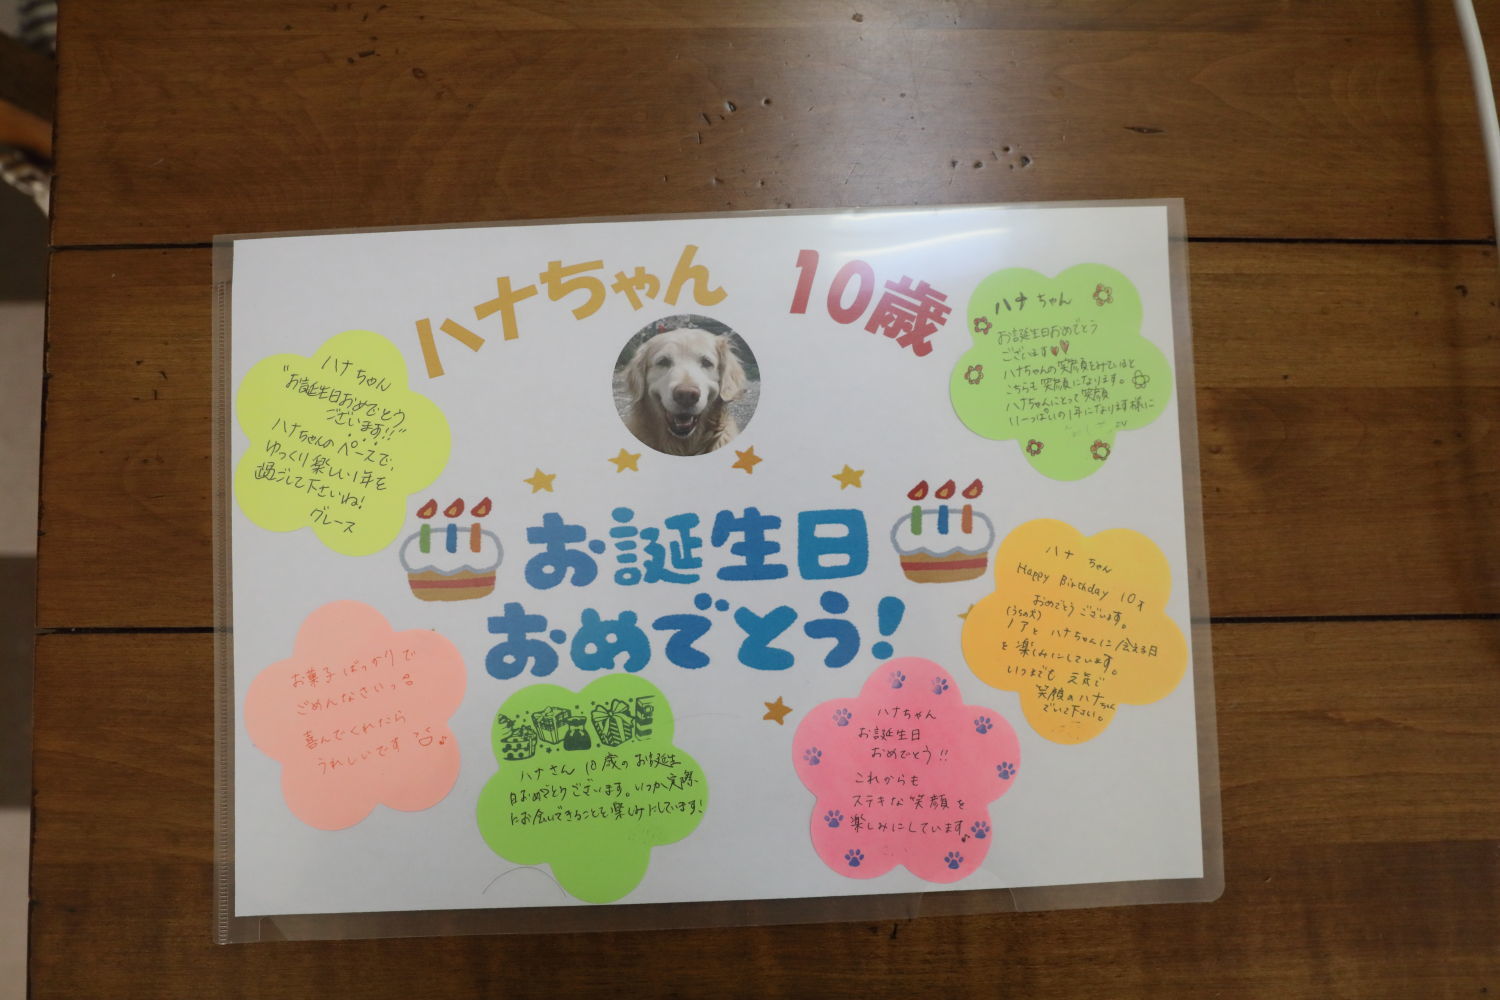 ハナちゃん 10歳
お誕生日
おめでとう!
ハナちゃん
"お誕生日おめでとう
ございます!!"
ハナちゃんのペースで、
ゆっくり楽しい1年を
過ごして下さいね!
グレース
ハナちゃん
お誕生日おめでとう
ございます
ハナちゃんの笑顔を見ていると
こちらも笑顔になります。
ハナちゃんにとって笑顔
いーっぱいの1年になります様に
ハナ ちゃん
Happy Birthday 10才
おめでとうございます。
(うちの犬)
ノアと ハナちゃんに会える日
を楽しみにしています。
いつまでも 元気で
笑顔のハナちゃん
でいて下さい。
お菓子ばっかりで
ごめんなさいっ
喜んでくれたら
うれしいです
ハナさん 10歳のお誕生
日おめでとうございます。いつか実際
にお会いできることを楽しみにしています!
ハナちゃん
お誕生日
おめでとう!!
これからも
ステキな笑顔を
楽しみにしています♪